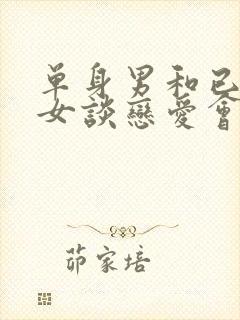 单身男和已
女谈恋爱会
茆家培